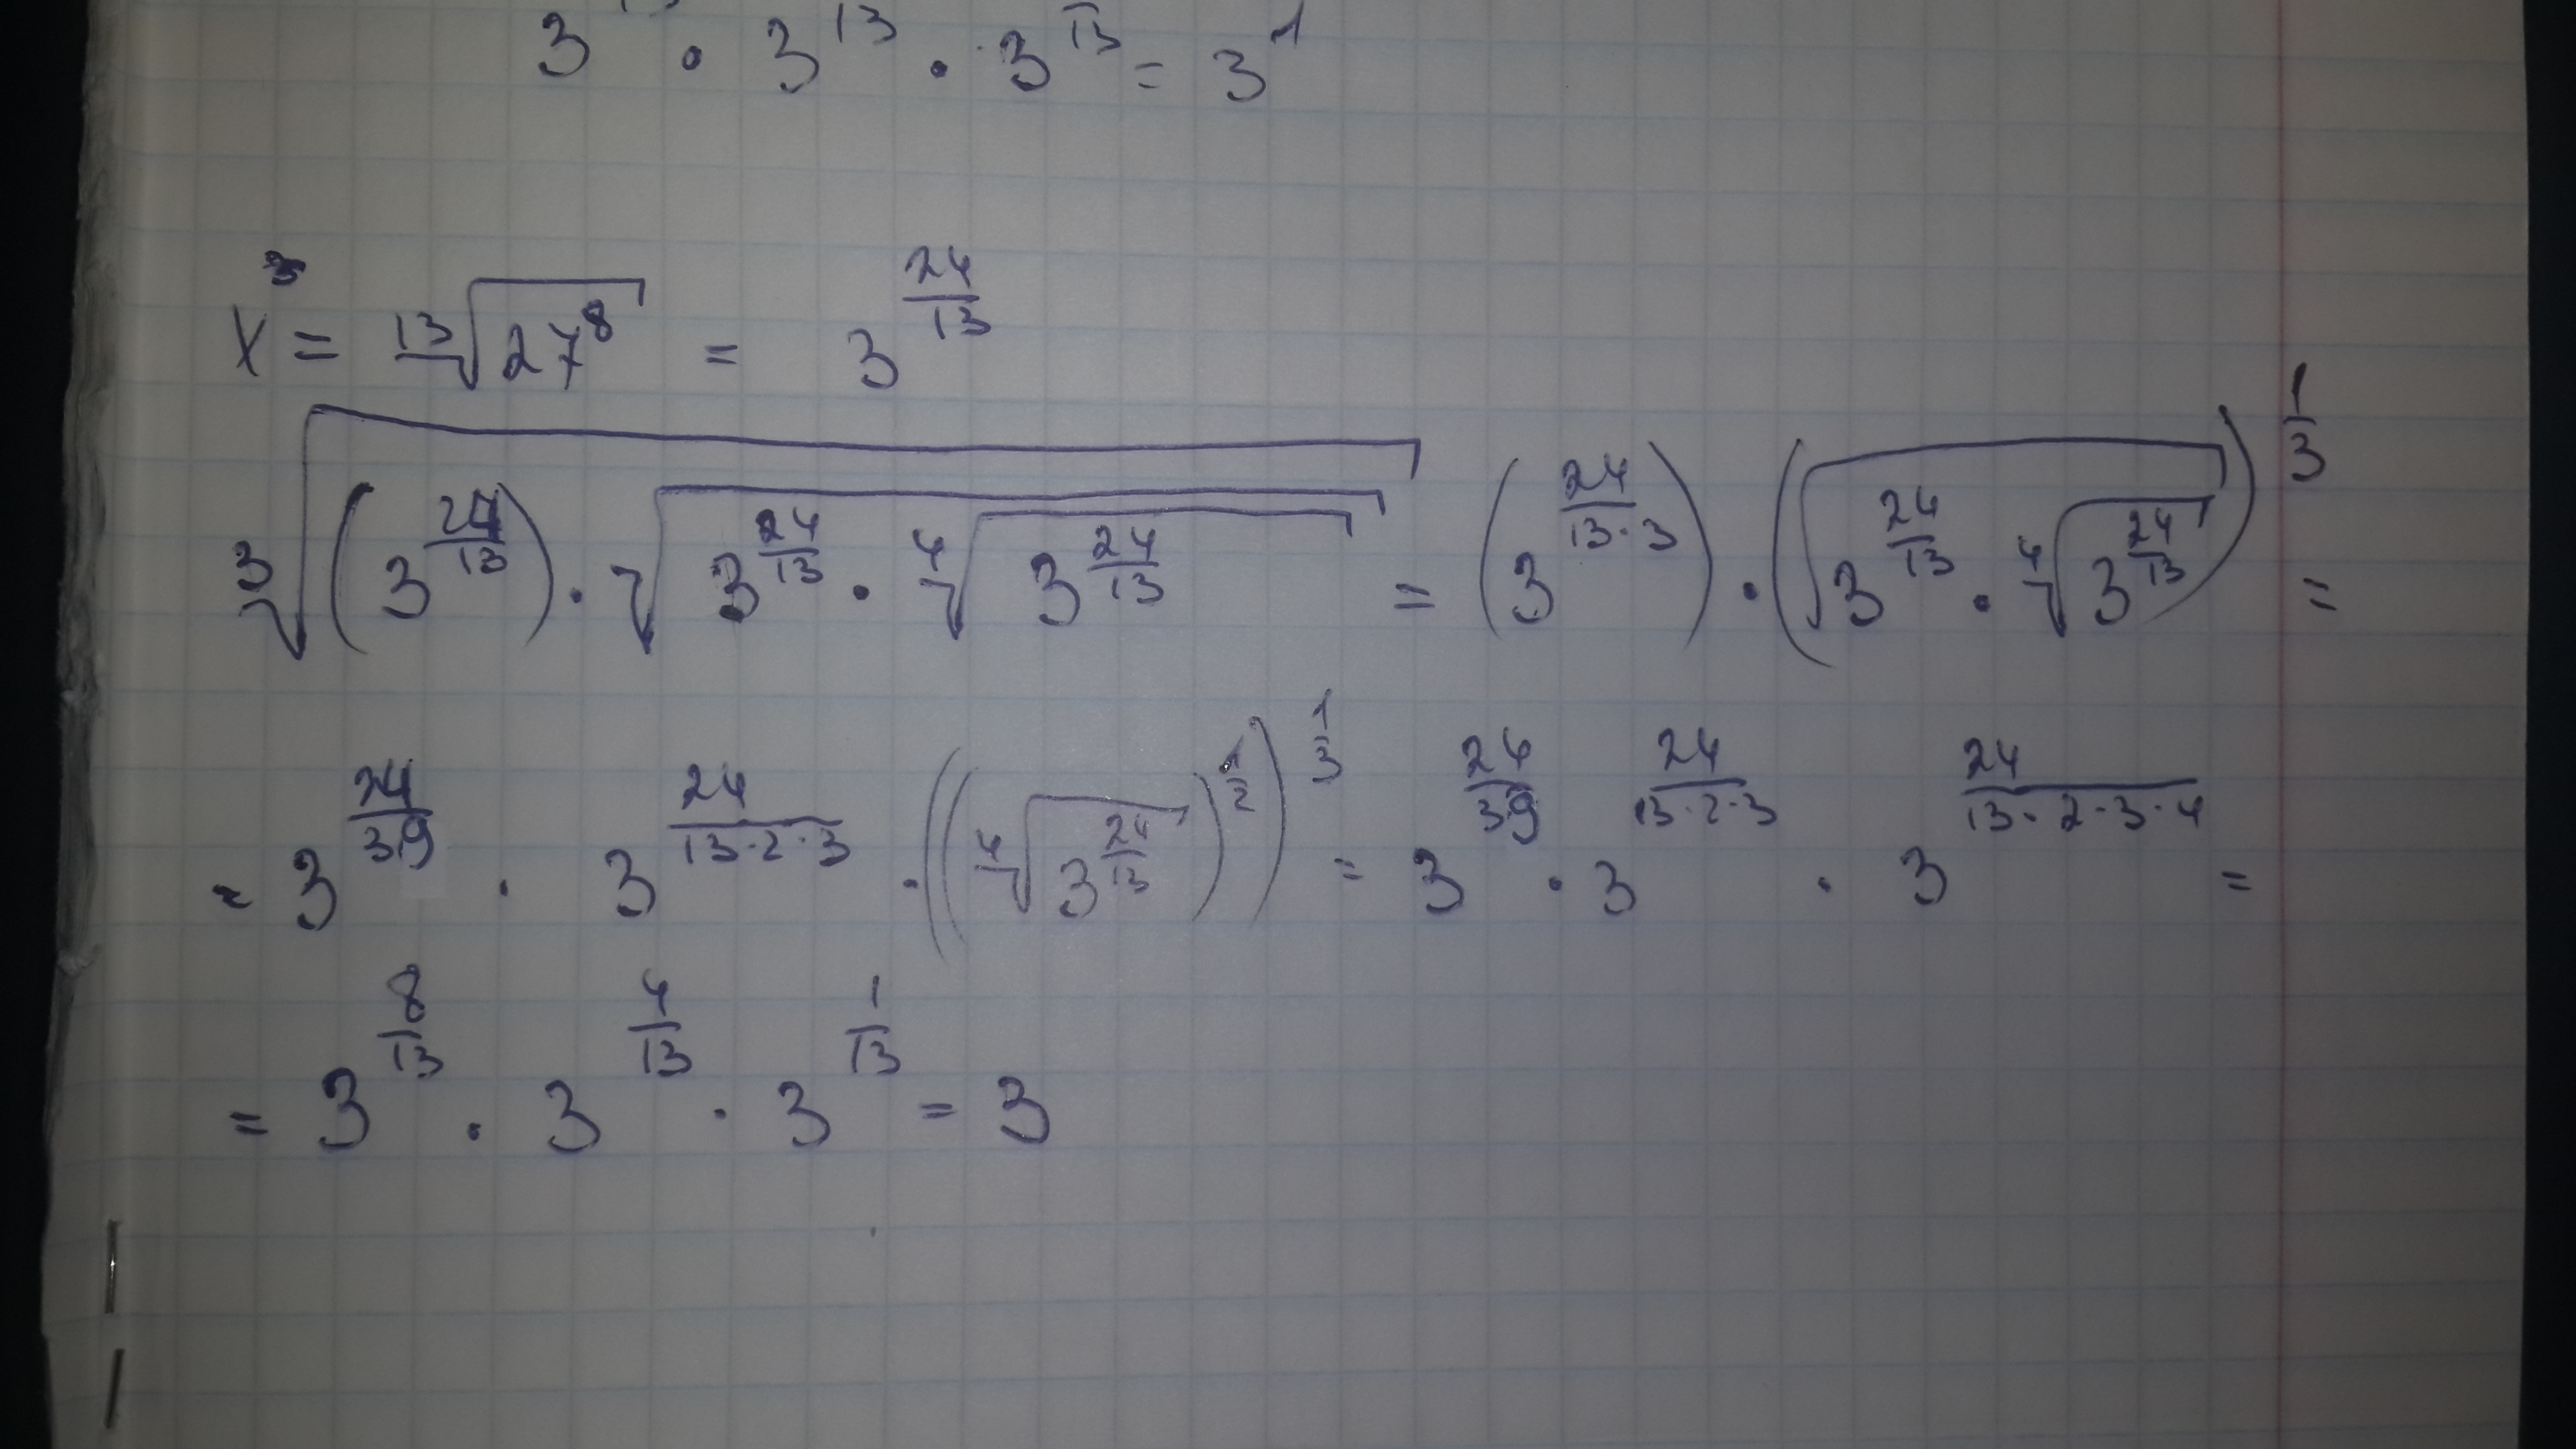 3 · 3^13 · 3^13 = 3^1
x^3 = ¹³√(27^8) = 3^(24/13)
³√((3^(24/13)) · √(3^(24/13) · ⁴√(3^(24/13)))) = (3^(24/(13·3))) · (√(3^(24/13) · ⁴√(3^(24/13))))^(1/3) =
= 3^(24/39) · 3^(24/(13·2·3)) · ((⁴√(3^(24/13)))^(1/2))^(1/3) = 3^(24/39) · 3^(24/(13·2·3)) · 3^(24/(13·2·3·4)) =
= 3^(8/13) · 3^(4/13) · 3^(1/13) = 3